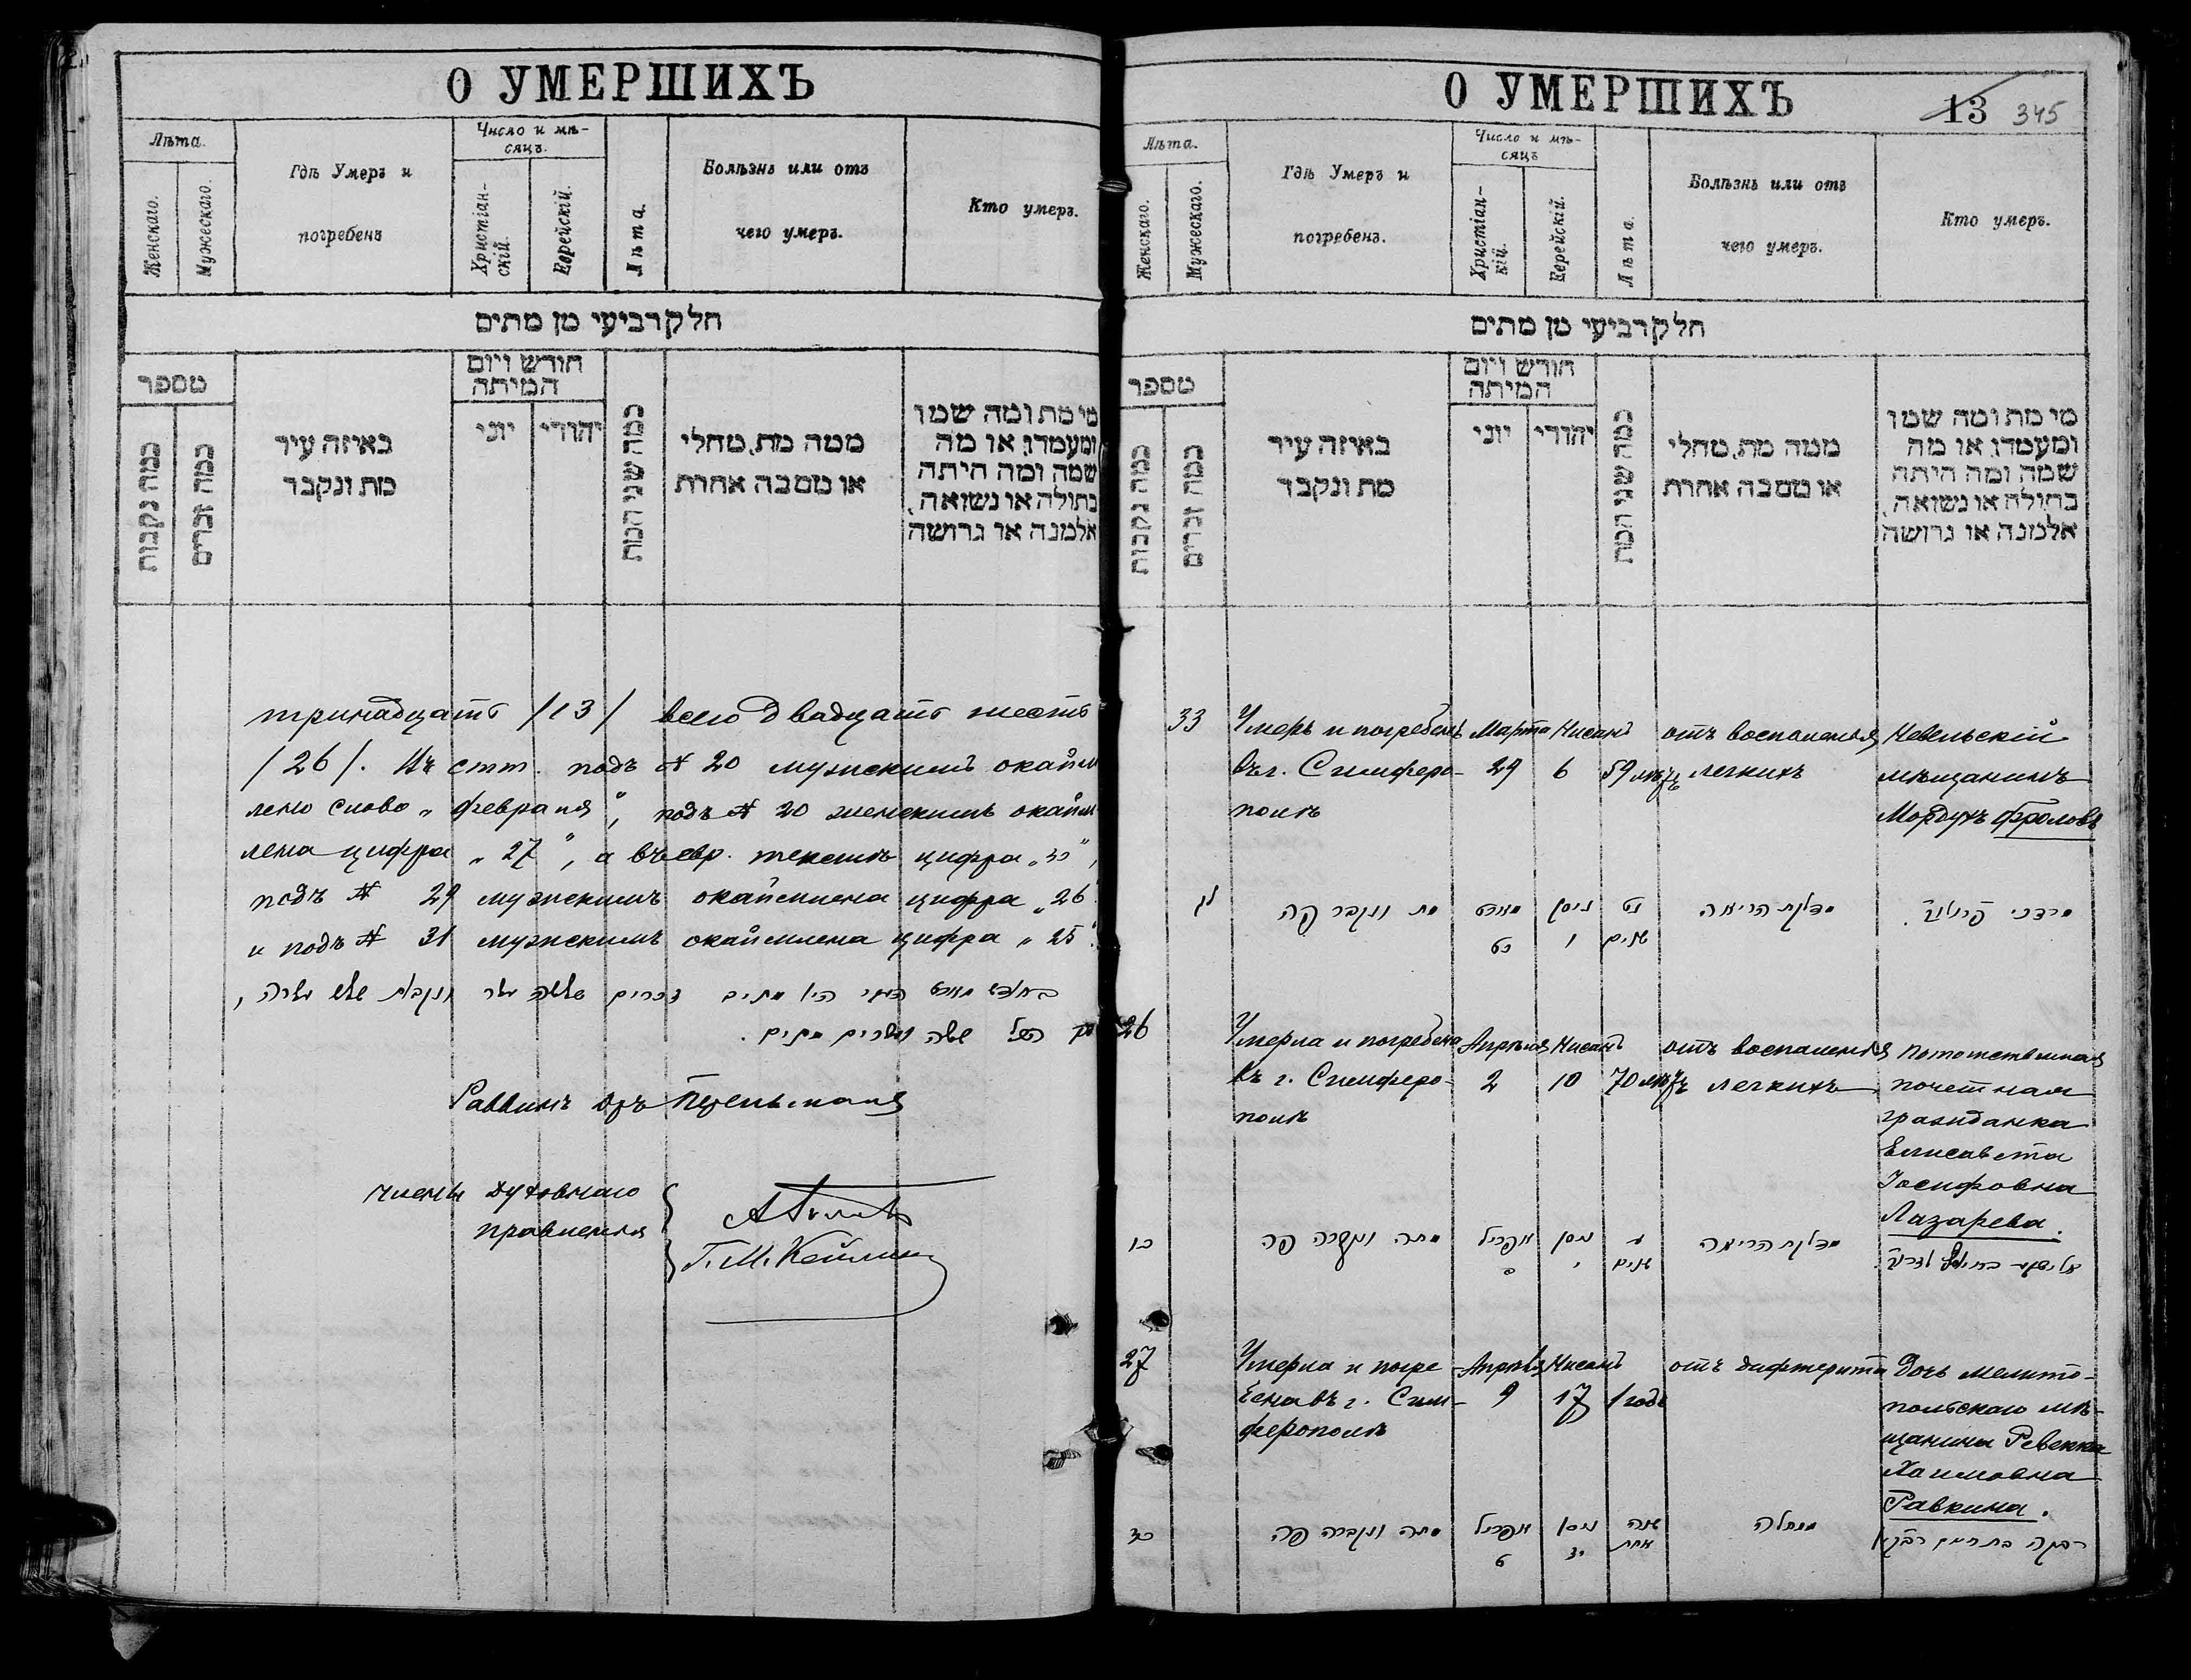 О УМЕРШИХЪ
Лѣта.
Женскаго.
Мужескаго.
Гдѣ Умеръ и
погребенъ
Число и мѣ-
сяцъ.
Христіан-
скій.
Еврейскій.
Лѣта.
Болѣзнь или отъ
чего умеръ.
Кто умеръ.
חלק רביעי מן מתים
מספר
כמה נקבות
כמה זכרים
באיזה עיר
מת ונקבר
חודש ויום
המיתה
יוני
יהודי
כמה שני המת
ממה מת, מחלי
או מסבה אחרת
מי מת ומה שמו
ומעמדו, או מה
שמה ומה היתה
בתולה או נשואה,
אלמנה או גרושה
тринадцать /13/ всего двадцать шесть
/26/. Въ стт. подъ № 20 мужскимъ окайм
лено слово „февраля“, подъ № 20 женскимъ окайм
лена цифра „27“, а въ евр. текстѣ цифра
подъ № 29 мужскимъ окаймлена цифра „26“
и подъ № 31 мужскимъ окаймлена цифра „25“.
בחודש מארט היו מתים זכרים שלשה עשר ונקבות שלש עשרה,
הכל ששה ועשרים מתים.
Раввинъ
Члены духовнаго
правленія
О УМЕРШИХЪ
13 345
Лѣта.
Женскаго.
Мужескаго.
Гдѣ Умеръ и
погребенъ.
Число и мѣ-
сяцъ
Христіан-
кій.
Еврейскій.
Лѣта.
Болѣзнь или отъ
чего умеръ.
Кто умеръ.
חלק רביעי מן מתים
מספר
כמה נקבות
כמה זכרים
באיזה עיר
מת ונקבר
חודש ויום
המיתה
יוני
יהודי
כמה שני המת
ממה מת, מחלי
או מסבה אחרת
מי מת ומה שמו
ומעמדו, או מה
שמה ומה היתה
בתולה או נשואה,
אלמנה או גרושה
33
Умеръ и погребенъ
въ г. Симферо-
полѣ
Марта
29
Нисанъ
6
59 лѣтъ
отъ воспаленія
легкихъ
Невельскій
мѣщанинъ
Мордухъ Фроловъ
לג
מת ונקבר פה
מארט
כט
ניסן
ו
נט
שנים
מדלקת הריאה
מרדכי פרולוב.
26
Умерла и погребена
въ г. Симферо-
полѣ
Апрѣля
2
Нисанъ
10
70 лѣтъ
отъ воспаленія
легкихъ
Потомственная
почетная
гражданка
Елисавета
Іосифовна
Лазарева.
כו
מתה ונקברה פה
אפריל
ב
ניסן
י
ע
שנים
מדלקת הריאה
27
Умерла и погре
бена въ г. Сим-
ферополѣ
Апрѣля
9
Нисанъ
17
1 годъ
отъ дифтерита
Дочь мелито-
польскаго мѣ-
щанина Ревекка
Хаимовна
Равкина.
כז
מתה ונקברה פה
אפריל
ט
ניסן
יז
שנה
אחת
רבקה בת חיים רבקין